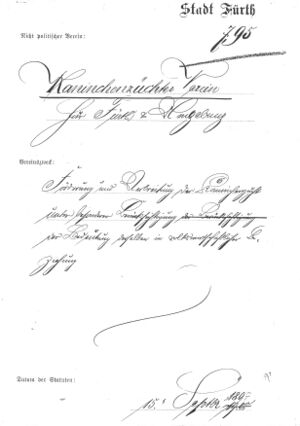 Stadt Fürth
Nicht politischer Verein:
795
Kaninchenzüchter Verein
für Fürth & Umgebung
Vereinszweck:
Förderung und Verbreitung der Kaninchenzucht
unter besonderer Berücksichtigung der Berücksichtigung
der Bedeutung derselben in volkswirtschaftlicher Be
ziehung
Datum der Statuten:
15. Septbr